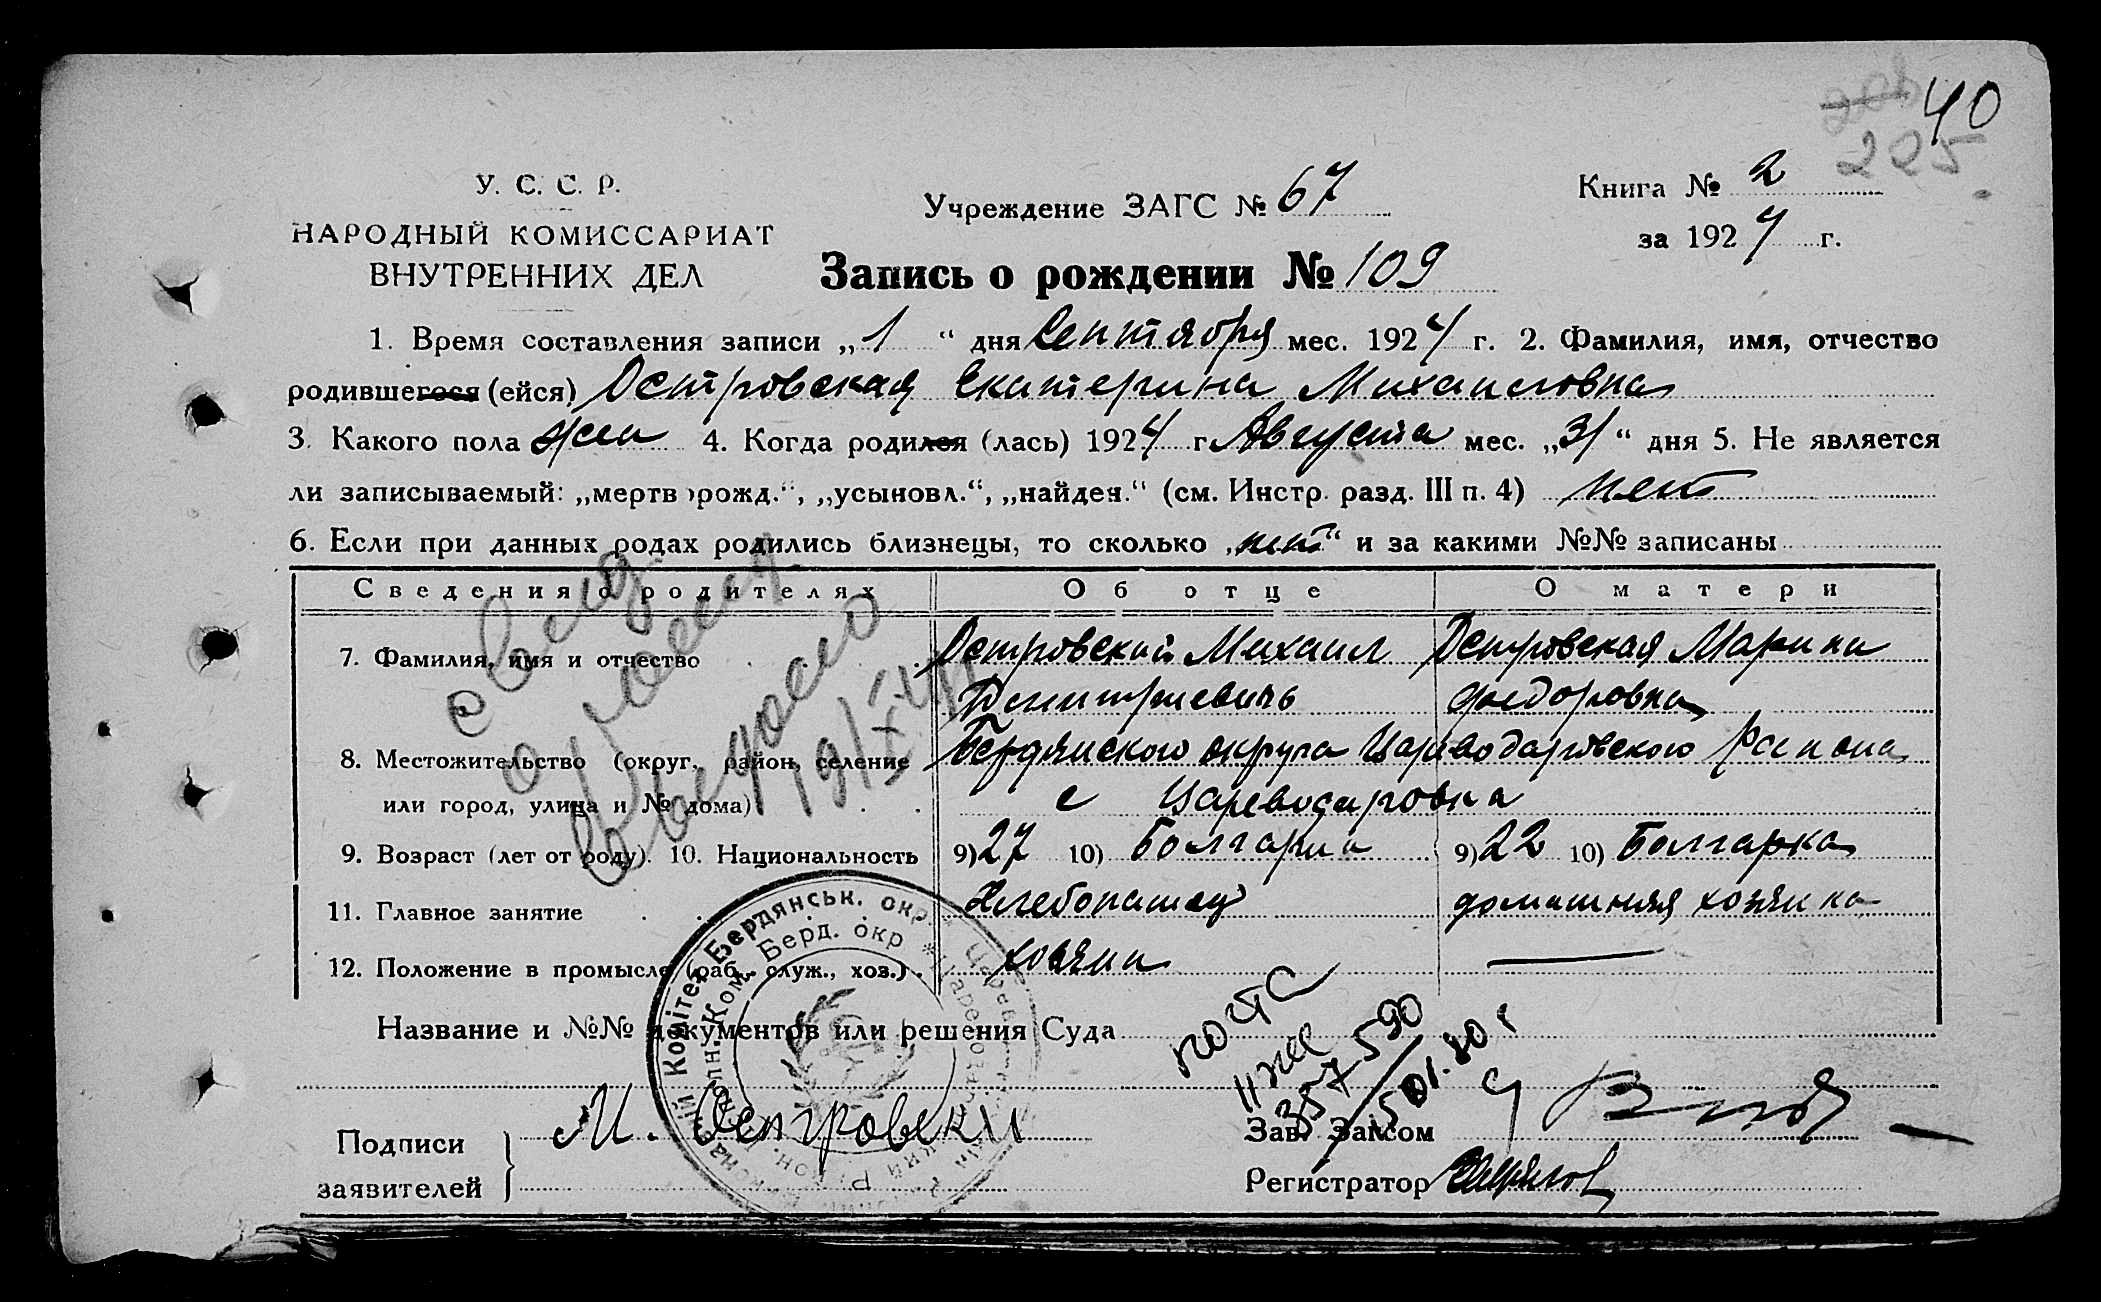 40
205
У. С. С. Р.
НАРОДНЫЙ КОМИССАРИАТ
ВНУТРЕННИХ ДЕЛ
Учреждение ЗАГС № 67
Книга № 2
за 1924 г.
Запись о рождении № 109
1. Время составления записи „1“ дня Сентября мес. 1924 г. 2. Фамилия, имя, отчество
родившегося (ейся) Островская Екатерина Михаиловна
3. Какого пола жен 4. Когда родился (лась) 1924 г. Августа мес. „31“ дня 5. Не является
ли записываемый: „мертворожд.“, „усыновл.“, „найден.“ (см. Инстр. разд. III п. 4) нет
6. Если при данных родах родились близнецы, то сколько „нет“ и за какими №№ записаны
Сведения о родителях Об отце О матери
7. Фамилия, имя и отчество Островский Михаил Островская Марина
Дмитриевичь Федоровна
8. Местожительство (округ, район, селение Бердянского округа Цареводаровского района
или город, улица и № дома) с Цареводаровка
9. Возраст (лет от роду). 10. Национальность 9) 27 10) Болгарин 9) 22 10) Болгарка
11. Главное занятие Хлебопашец домашняя хозяика
12. Положение в промысле (раб., служ., хоз.) хозяин —
Название и №№ документов или решения Суда
Подписи
заявителей
М. Островски
Зав. Загсом
Регистратор
свид
о рожд
выдано
Комітет Бердянськ. окр
Ком. Берд. окр